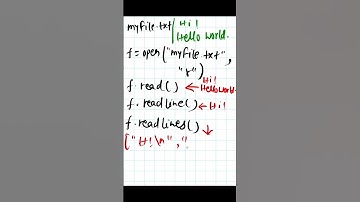 myfile.txt | Hi!
Hello world.
f = open("myfile.txt",
"r")
f.read() ← Hi!
Hello world.
f.readline() ← Hi!
f.readlines() ↓
["Hi\n", ".